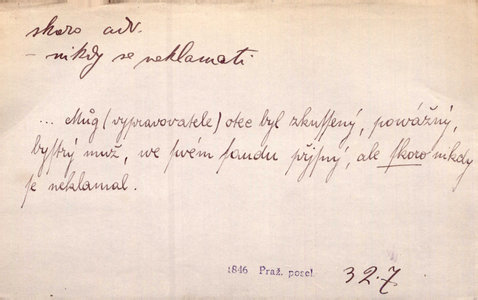 skoro adv.
- nikdy se neklamati
... Můg (vypravovatele) otec byl zkuſſený, powážný,
byſtrý muž, we ſwém ſaudu přjſný, ale ſkoro nikdy
ſe neklamal.
1846 Praž. posel 32.7